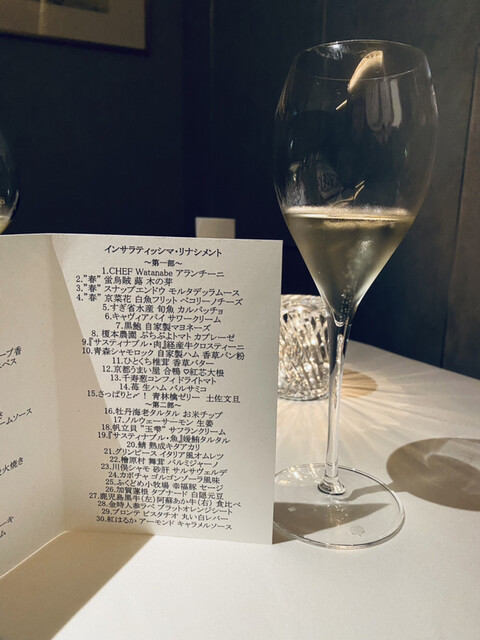 プ香
ペス
ームソース
火焼き
ーキ
ム
インサラティッシマ・リナシメント
〜第一部〜
1.CHEF Watanabe アランチーニ
2.”春” 蛍烏賊 蕗 木の芽
3.”春” スナップエンドウ モルタデッラムース
4.”春” 京菜花 白魚フリット ペコリーノチーズ
5.すぎ省水産 旬魚 カルパッチョ
6.キャヴィアパイ サワークリーム
7.黒鮑 自家製マヨネーズ
8.榎本農園 ぷちぷよトマト カプレーゼ
9.『サスティナブル・肉』経産牛クロスティーニ
10.青森シャモロック 自家製ハム 香草パン粉
11.ひとくち椎茸 香草バター
12.京都うまい屋 合鴨 ♡紅芯大根
13.千寿葱コンフィドライトマト
14.苺 生ハム バルサミコ
15.さっぱりと〆! 青林檎ゼリー 土佐文旦
〜第二部〜
16.牡丹海老タルタル お米チップ
17.ノルウェーサーモン 生姜
18.帆立貝 ”玉雫” サフランクリーム
19.『サスティナブル・魚』緩鮪タルタル
20.鯖 熟成キタアカリ
21.グリンピース イタリア風オムレツ
22.檜原村 舞茸 パルミジャーノ
23.川俣シャモ 砂肝 サルサヴェルデ
24.カボチャ ゴルゴンゾーラ風味
25.ふくどめ小牧場 幸福豚 セージ
26.加賀蓮根 タプナード 白隠元豆
27.鹿児島黒牛(左)阿蘇あか牛(右) 食べ比べ
28.金時人参ラペ ブラッドオレンジシート
29.ブロンテ ピスタチオ 丸い白レバー
30.紅はるか アーモンド キャラメルソース